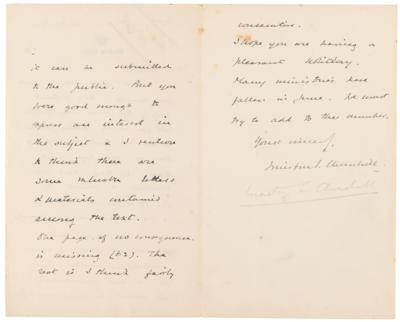 it can be submitted
to the public. But you
were good enough to
express an interest in
the subject & I venture
to think there are
some valuable letters
& materials contained
among the text.
One page of no consequence
is missing (±2). The
rest is I think fairly
consecutive.
I hope you are having a
pleasant Whitsun
Many ministries have
fallen in June. We must
try to add to the number.
Yours sincerely,
Winston S. Churchill